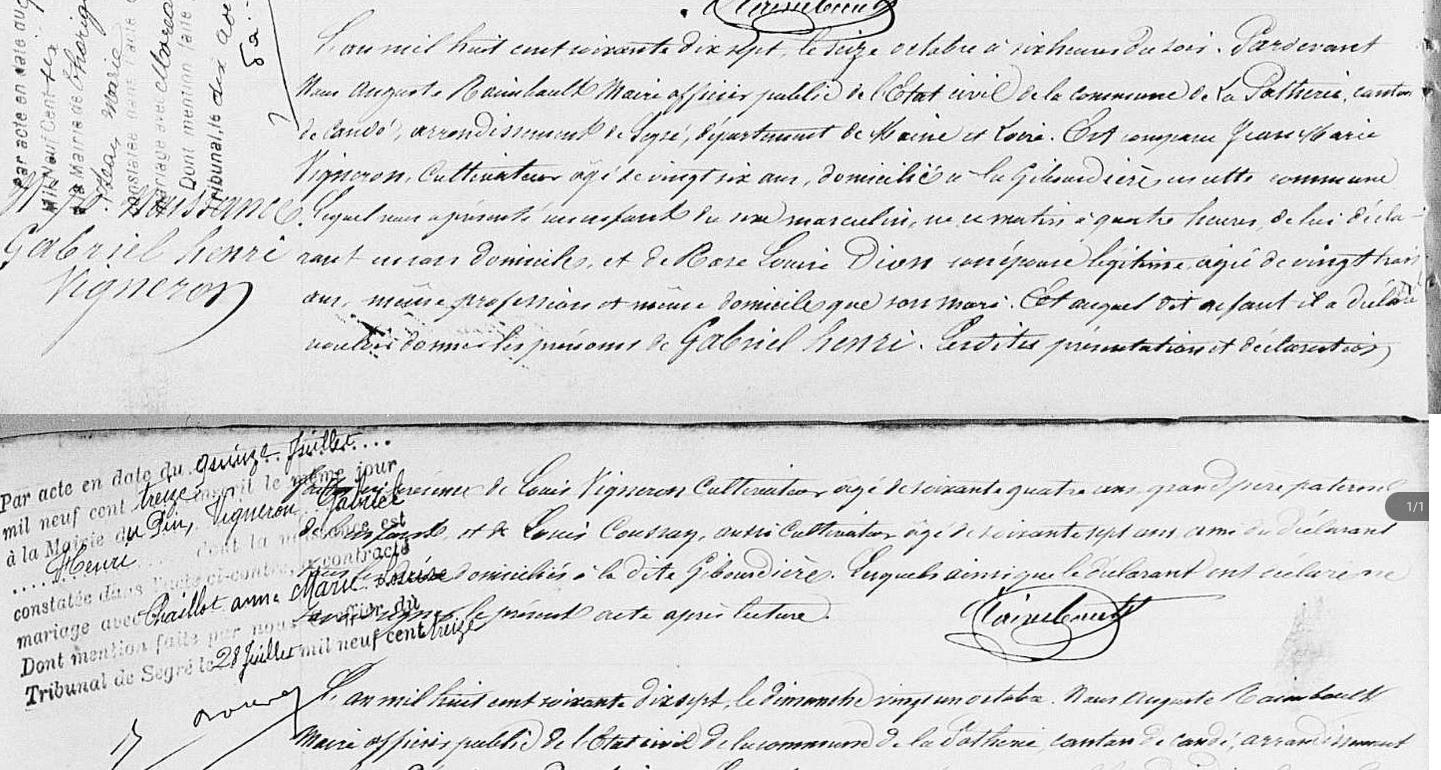 Par acte en date du
Mil Neuf Cent six
à la Mairie de
Jean Marie
constatée dans l'acte
mariage avec
Dont mention faite
Tribunal, le dix
Naissance
Gabriel henri
Vigneron
Raimbault
L'an mil huit cent soixante dix sept, le seize octobre à six heures du soir. Pardevant
Nous Auguste Raimbault Maire officier public de l'Etat civil de la commune de La Potherie, canton
de Candé, arrondissement de Segré, département de Maine et Loire. Est comparu Jean Marie
Vigneron, Cultivateur âgé de vingt six ans, domicilié à la Gibourdière en cette commune
Lequel nous a présenté un enfant du sexe masculin, né ce matin à quatre heures, de lui décla-
rant en son domicile, et de Rose Louise Dion son épouse légitime, agée de vingt trois
ans, même profession et même domicile que son mari. Et auquel dit enfant il a déclaré
vouloir donner les prénoms de Gabriel henri. Lesdites présentation et déclaration
Par acte en date du quinze Juillet...
mil neuf cent treize inscrit le même jour
à la Mairie du Pin, Vigneron Gabriel
....Henri dont la naissance est
constatée dans l'acte ci-contre, a contracté
mariage avec Chaillot anne Marie Louise
Dont mention faite par nous Greffier du
Tribunal de Segré le 28 Juillet mil neuf cent treize
présence de Louis Vigneron Cultivateur âgé de soixante quatre ans, grand père paternel
de l'enfant, et de Louis Coussay, aussi Cultivateur âgé de soixante sept ans, ami du déclarant
domiciliés à la dite Gibourdière. Lesquels ainsi que le déclarant ont déclaré ne
signer le présent acte après lecture.
Raimbault
L'an mil huit cent soixante dix sept, le dimanche vingt un octobre. Nous Auguste Raimbault
Maire officier public de l'Etat civil de la commune de la Potherie, canton de Candé, arrondissement
1/1